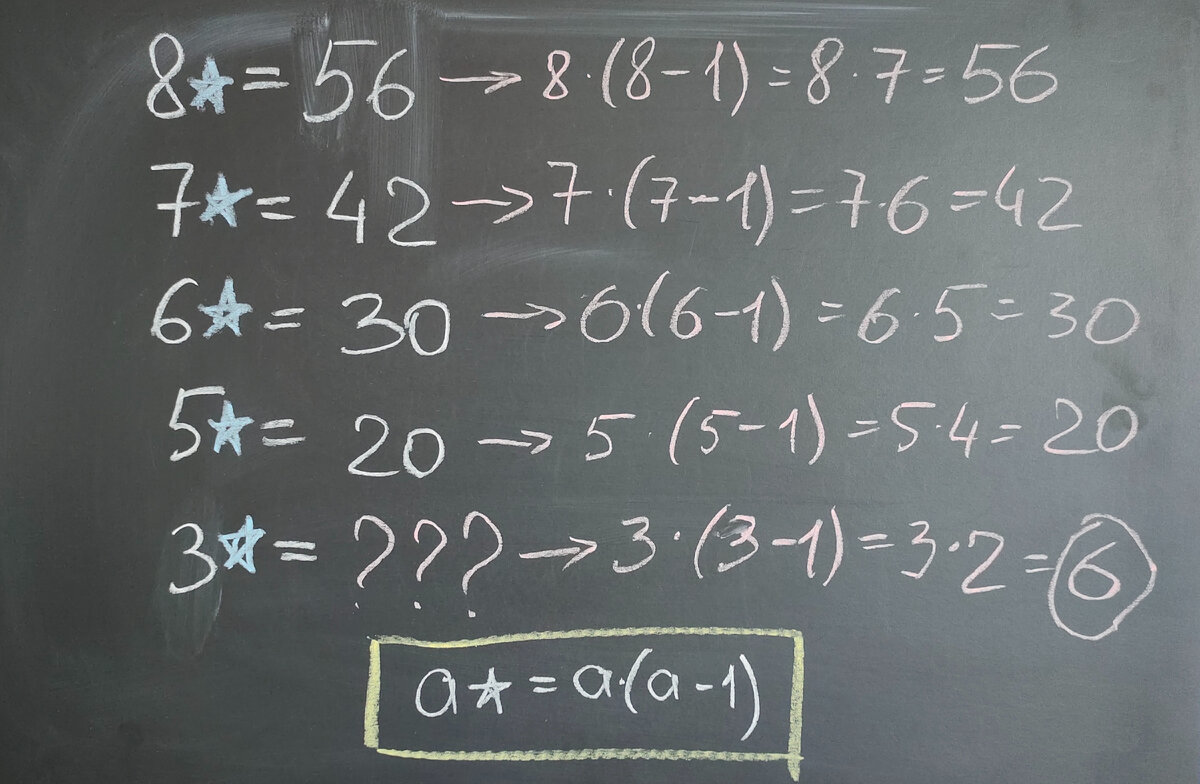 8★ = 56 → 8·(8-1) = 8·7 = 56
7★ = 42 → 7·(7-1) = 7·6 = 42
6★ = 30 → 6·(6-1) = 6·5 = 30
5★ = 20 → 5·(5-1) = 5·4 = 20
3★ = ??? → 3·(3-1) = 3·2 = 6
a★ = a·(a-1)